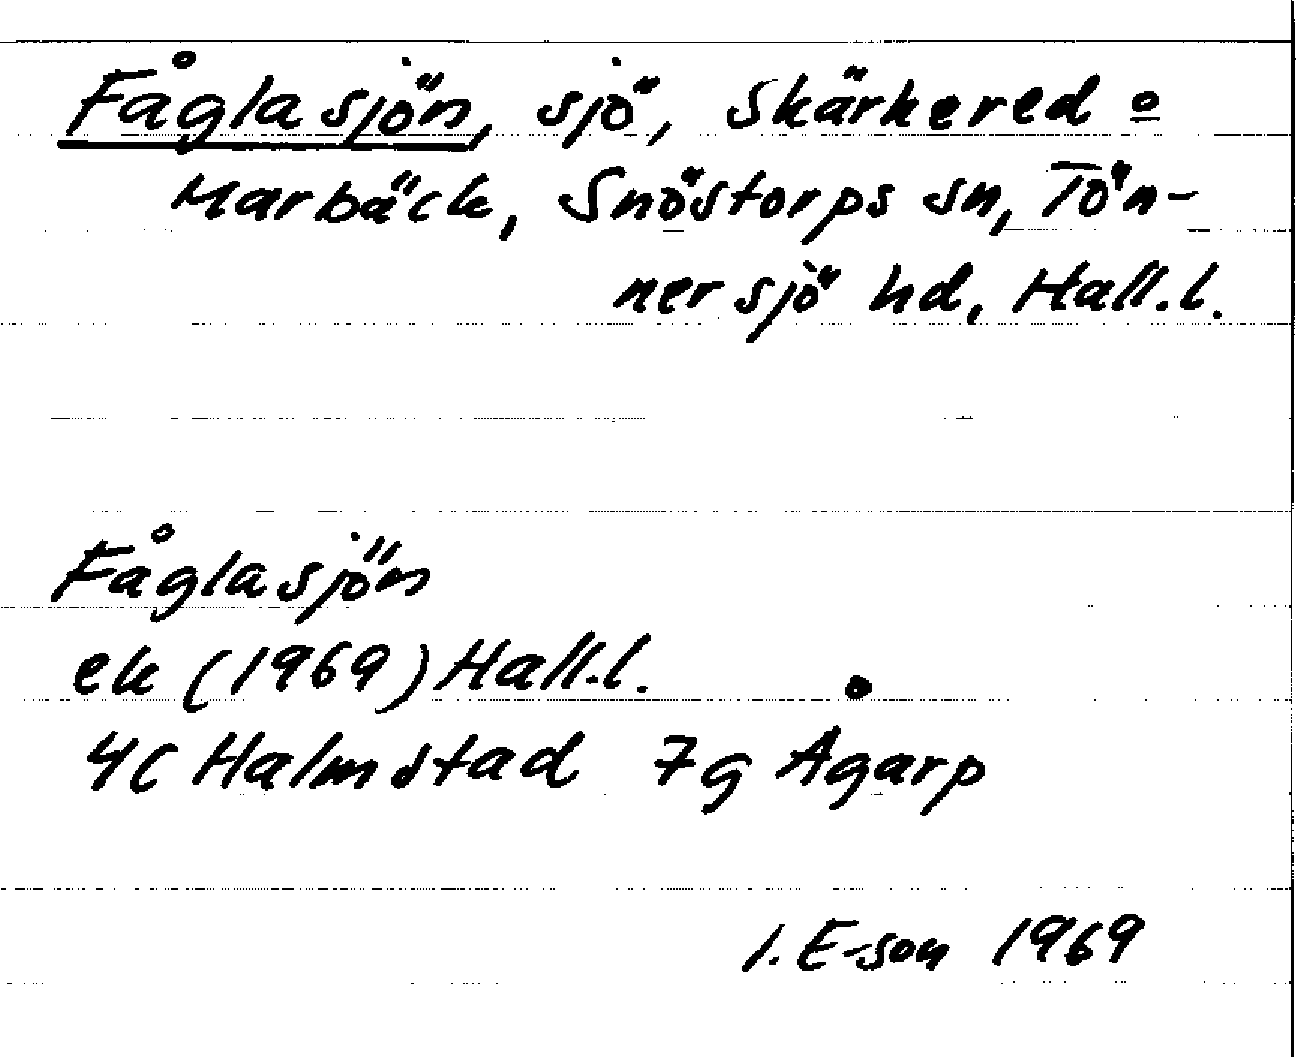 Fåglasjön, sjö, Skärkered o
Marbäck, Snöstorps sn, Tön-
nersjö hd, Hall.l.
Fåglasjön
ek (1969) Hall.l.
4C Halmstad 7g Ågarp
I. E-son 1969